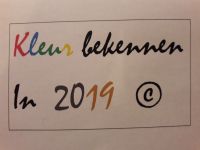 Kleur bekennen
In 2019 ©